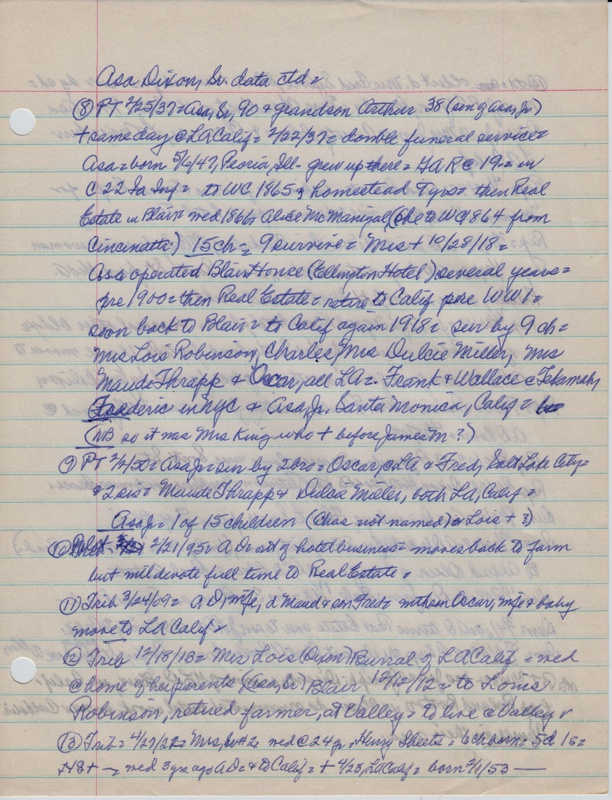 Asa Dixon, Sr. data ctd =
(8) PT 2/25/37 = Asa, Sr, 90 & grandson Arthur 38 (son of Asa, Jr)
+ same day @ LA Calif = 2/22/37 = double funeral service =
Asa = born 5/4/47, Peoria, Ill - grew up there = GAR @ 19 = in
C 22 Ia Inf = to WC 1865 & homestead Tyso = then Real
Estate in Blair = med 1866 Alice McManigal (she to WC 1864 from
Cincinatta) 15 ch = 9 survive = Mrs + 10/28/18 =
Asa operated Blair House (Ellington Hotel) several years =
pre 1900 = then Real Estate = retire to Calif pre WW1 =
soon back to Blair = to Calif again 1918 = sur by 9 ch =
Mrs Lois Robinson, Charles, Mrs Dulcie Miller, Mrs
Maude Thrapp & Oscar, all LA = Frank & Wallace @ Tekamah,
Frederic in NYC & Asa, Jr. Santa Monica, Calif =
(NB so it was Mrs King who + before James M ?)
9) PT = Asa Jr = sur by 2 bro = Oscar, LA & Fred, Salt Lake City =
& 2 sis = Maude Thrapp & Dulcie Miller, both LA, Calif =
Asa Jr = 1 of 15 children (Chas not named) & Lois + ?)
(10) 2/21/95 = A D out of hotel business = moves back to farm
but will devote full time to Real Estate =
(11) Trib 3/24/09 = A D, wife, d Maud & son Fred = with son Oscar, wife & baby
move to LA Calif =
(12) Trib 12/18/13 = Mrs Lois (Dixon) Burral of LA Calif = med
@ home of her parents (Asa, Sr) Blair 12/12/12 = to Louis
Robinson, retired farmer, at Valley = to live @ Valley
(13) Trib = 4/27/22 = Mrs, W#2 = med @ 24 yr = Henry Sheets = 6 ch born = 5 d 1 s =
HS + = med 3 yrs ago A D & to Calif = + 4/23, LA Calif = born 2/1/53